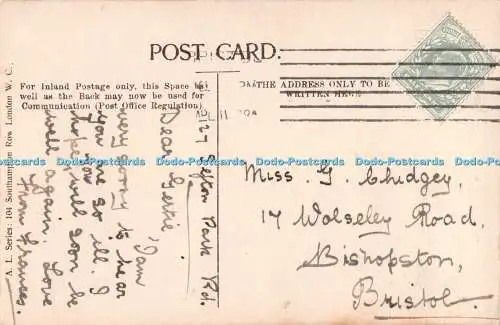 POST CARD.
For Inland Postage only, this Space as
well as the Back may now be used for
Communication (Post Office Regulation)
THE ADDRESS ONLY TO BE
WRITTEN HERE
A. L. Series: 104 Southampton Row London W. C.
127 Sefton Park Rd.
Dear Gertie,
I am
very sorry to hear
you are so ill. I
hope you will soon be
well again. Love
From Frances.
Miss. G. Chidgey,
17 Wolseley Road,
Bishopston,
Bristol.
Dodo-Postcards Dodo-Postcards Dodo-Postcards Dodo-Postcards Dodo-Postcards